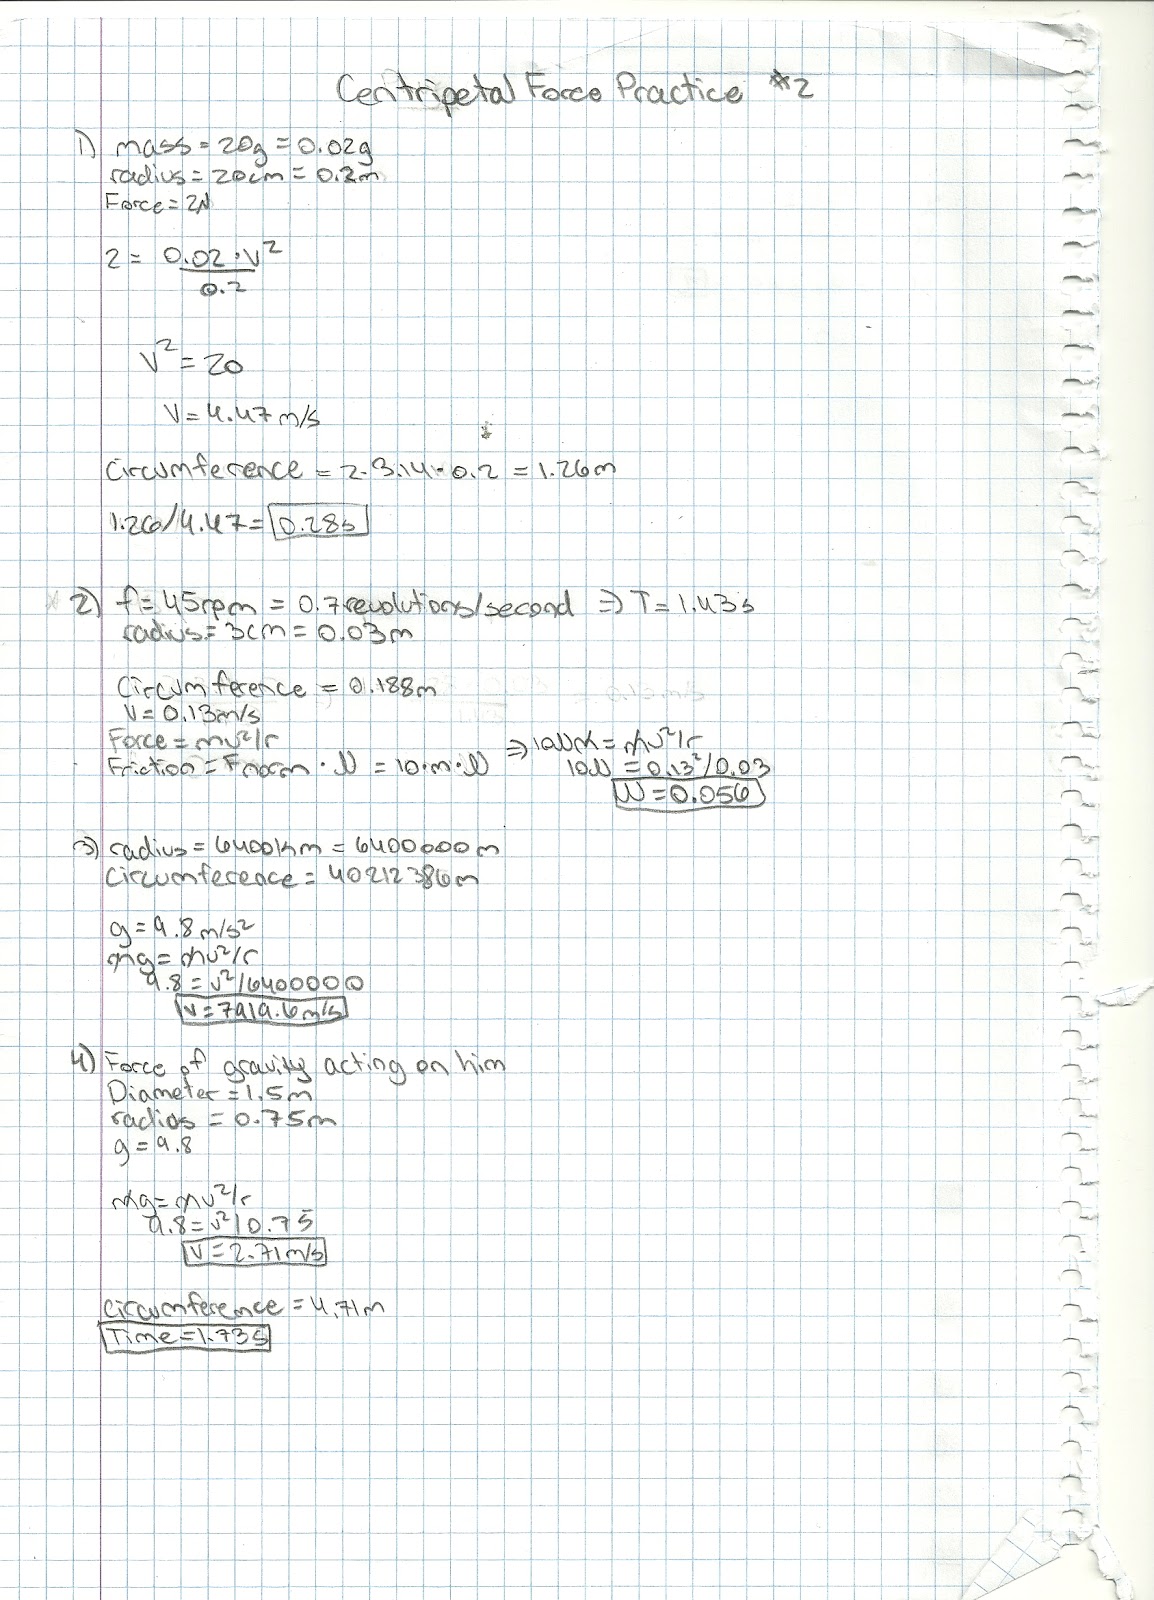 Centripetal Force Practice #2
1) mass = 20g = 0.02g
radius = 20cm = 0.2m
Force = 2N
2 = 0.02 · v²
0.2
v² = 20
v = 4.47 m/s
Circumference = 2·3.14·0.2 = 1.26m
1.26/4.47 = 0.28s
2) f = 45rpm = 0.7 revolutions/second ⇒ T = 1.43s
radius = 3cm = 0.03m
Circumference = 0.188m
v = 0.13m/s
Force = mv²/r ⇒ 10μm = mv²/r
Friction = Fnorm · μ = 10·m·μ 10μ = 0.13²/0.03
μ = 0.056
3) radius = 6400km = 6400000m
Circumference = 40212386m
g = 9.8m/s²
mg = mv²/r
9.8 = v²/6400000
v = 7919.6m/s
4) Force of gravity acting on him
Diameter = 1.5m
radius = 0.75m
g = 9.8
mg = mv²/r
9.8 = v²/0.75
v = 2.71m/s
circumference = 4.71m
Time = 1.73s